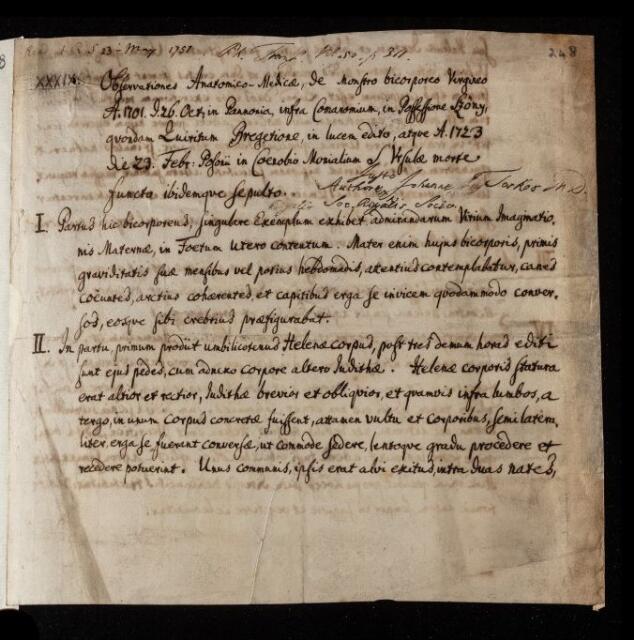 Read at R. S. 23 May 1751 Ph. Trans. Vol. 50. p. 311. 248
XXXIX. Observationes Anatomico-Medicæ, de Monstro bicorporeo Virgineo
A. 1701. d. 26. Oct. in Pannonia, infra Comaromium, in Possessione Szony,
quondam Quiritum Bregetione, in lucem edito, atque A. 1723
die 23. Febr. Posonii in Cœnobio Monialium S. Ursulæ morte
functo ibidemque sepulto.
Authore Torkos M.D.
Soc. Regalis Socio.
I. Partus hic bicorporeus, singulare Exemplum exhibet admirandarum Virium Imaginatio-
nis Maternæ, in Foetum utero contentum. Mater enim hujus bicorporis, primis
graviditatis suæ mensibus vel potius hebdomadis, attentius contemplabatur, canes
coëuntes, arctius cohærentes, et capitibus erga se invicem quodammodo conver-
sos, eosque sibi crebrius præfigurabat.
II. In partu, primum prodiit umbilicotenus Helenæ corpus, post tres demum horas editi
sunt ejus pedes, cum adnexo corpore altero Judithæ. Helenæ corporis statura
erat altior et rectior, Judithæ brevior et obliquior, et quamvis infra lumbos, a
tergo, in unum corpus concretæ fuissent, attamen vultu et corporibus, semilatera-
liter, erga se fuerant conversæ, ut commode sedere, lentoque gradu procedere et
recedere potuerint. Unus communis, ipsis erat alvi exitus, intra duas nates,